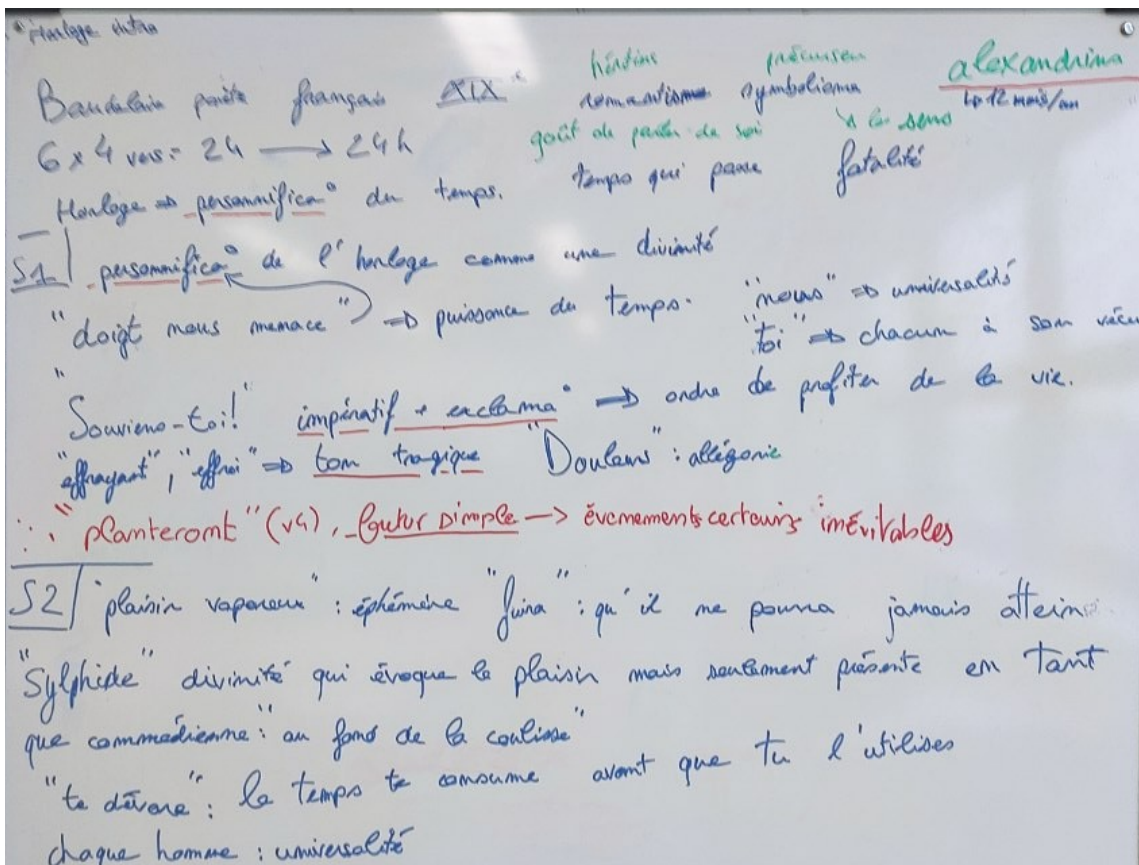 * Horloge intro
héritins précurseu alexandrins
Baudelaire poète français XIXe romantisme symbolisme ↳ 12 mois/an
6 x 4 vers = 24 → 24h goût de parler de soi ↘ les sens
Horloge => personnifica° du temps. temps qui passe fatalité
S1 personnifica° de l'horloge comme une divinité
"doigt nous menace" => puissance du temps. "nous" => universalité
"toi" => chacun à son vécu
"Souviens-toi!" impératif + exclama° => ordre de profiter de la vie.
"effrayant", "effroi" => ton tragique "Douleurs" : allégorie
"planteront" (v4), futur simple -> évenements certains inévitables
S2 "plaisir vaporeux" : éphémère "fuira" : qu'il ne pourra jamais attein
"Sylphide" divinité qui évoque le plaisir mais seulement présente en tant
que commédienne : "au fond de la coulisse"
"te dévore" : le temps te consume avant que tu l'utilises
chaque homme : universalité